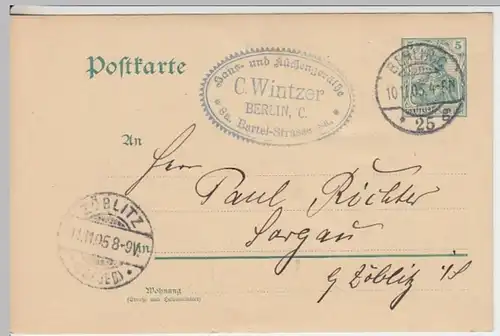 Postkarte
5
BERLIN, C.
10.11.05.4-5N.
* 25 g
Haus- und Küchengeräthe
C. Wintzer
BERLIN, C.
* 8a. Bartel-Strasse 8a. *
An
Herrn
Paul Richter
Sorgau
b/ Zöblitz i/S
ZÖBLITZ
11.11.05 8-9V.
in
Wohnung
(Straße und Hausnummer)